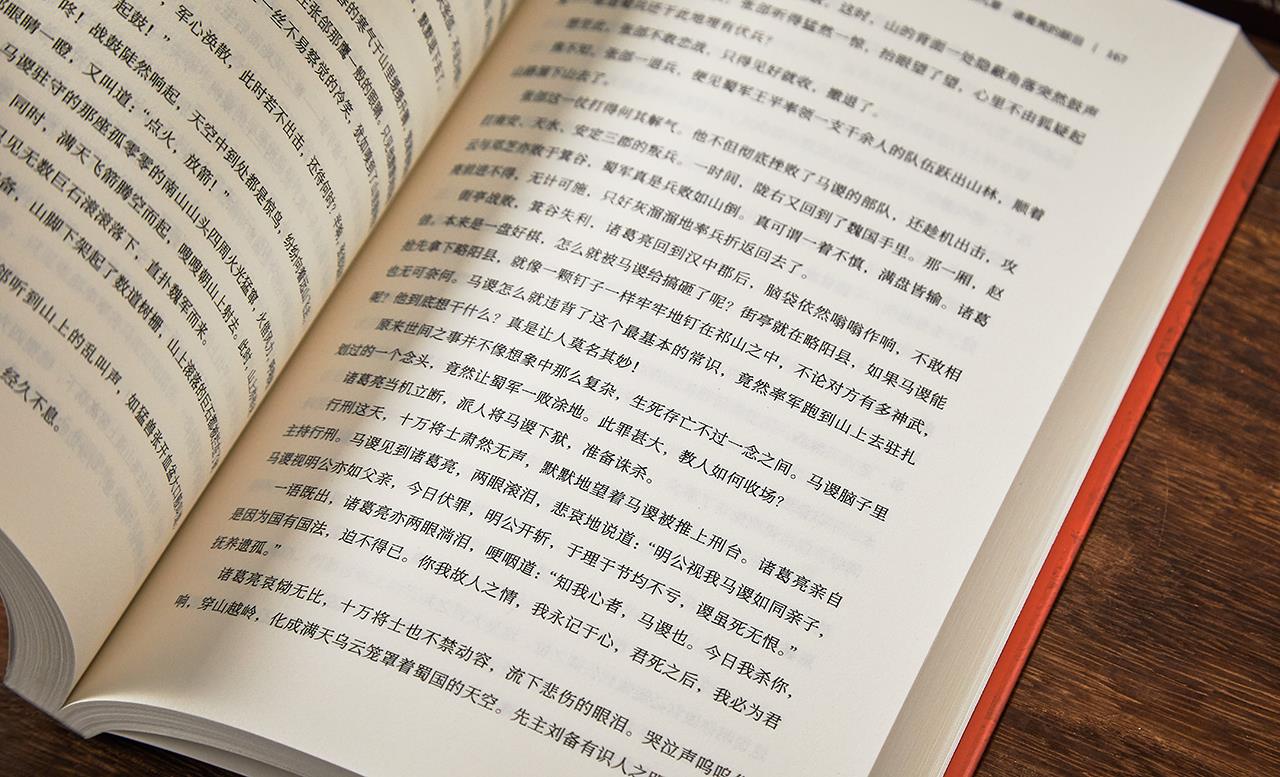 起鼓！”
，军心涣散，此时若不出击，还待何时？
咚！战鼓陡然响起，天空中到处都是惊鸟，纷纷向
那眼睛一瞪，又叫道：“点火，放箭！”
马谡驻守的那座孤零零的南山山头四周火光猛窜，火借
同时，满天飞箭腾空而起，嗖嗖朝山上射去。此时，山上
只见无数巨石滚滚落下，直扑魏军而来。
备，山脚下架起了数道树栅，山上滚落的巨石
郃听到山上的乱叫声，如猛兽张开血盆大口
经久不息。
诸葛亮的 | 167
这时，山的背面一处隐蔽角落突然鼓声
张郃听得猛然一惊，抬眼望了望，心里不由狐疑起
兵还于此地埋有伏兵？
想见此，张郃不敢恋战，只得见好就收，撤退了。
殊不知，张郃一退兵，便见蜀军王平率领一支千余人的队伍跃出山林，顺着
山路溜下山去了。
张郃这一仗打得何其解气。他不但彻底挫败了马谡的部队，还趁机出击，攻
打南安、天水、安定三郡的叛兵。一时间，陇右又回到了魏国手里。那一厢，赵
云与邓芝亦败于箕谷，蜀军真是兵败如山倒。真可谓一着不慎，满盘皆输。诸葛
亮前进不得，无计可施，只好灰溜溜地率兵折返回去了。
街亭战败，箕谷失利，诸葛亮回到汉中郡后，脑袋依然嗡嗡作响，不敢相
信。本来是一盘好棋，怎么就被马谡给搞砸了呢？街亭就在略阳县，如果马谡能
抢先拿下略阳县，就像一颗钉子一样牢牢地钉在祁山之中，不论对方有多神武，
也无可奈何。马谡怎么就违背了这个最基本的常识，竟然率军跑到山上去驻扎
呢？他到底想干什么？真是让人莫名其妙！
原来世间之事并不像想象中那么复杂，生死存亡不过一念之间。马谡脑子里
划过的一个念头，竟然让蜀军一败涂地。此罪甚大，教人如何收场？
诸葛亮当机立断，派人将马谡下狱，准备诛杀。
行刑这天，十万将士肃然无声，默默地望着马谡被推上刑台。诸葛亮亲自
主持行刑。马谡见到诸葛亮，两眼滚泪，悲哀地说道：“明公视我马谡如同亲子，
马谡视明公亦如父亲，今日伏罪，明公开斩，于理于节均不亏，谡虽死无恨。”
一语既出，诸葛亮亦两眼淌泪，哽咽道：“知我心者，马谡也。今日我杀你，
是因为国有国法，迫不得已。你我故人之情，我永记于心，君死之后，我必为君
抚养遗孤。”
诸葛亮哀恸无比，十万将士也不禁动容，流下悲伤的眼泪。哭泣声呜呜
响，穿山越岭，化成满天乌云笼罩着蜀国的天空。先主刘备有识人之